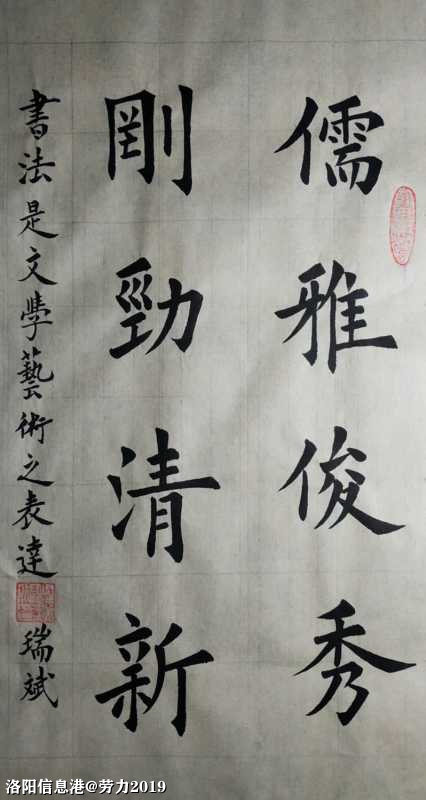 儒雅俊秀
剛勁清新
書法是文學藝術之表達
瑞斌
洛阳信息港@劳力2019